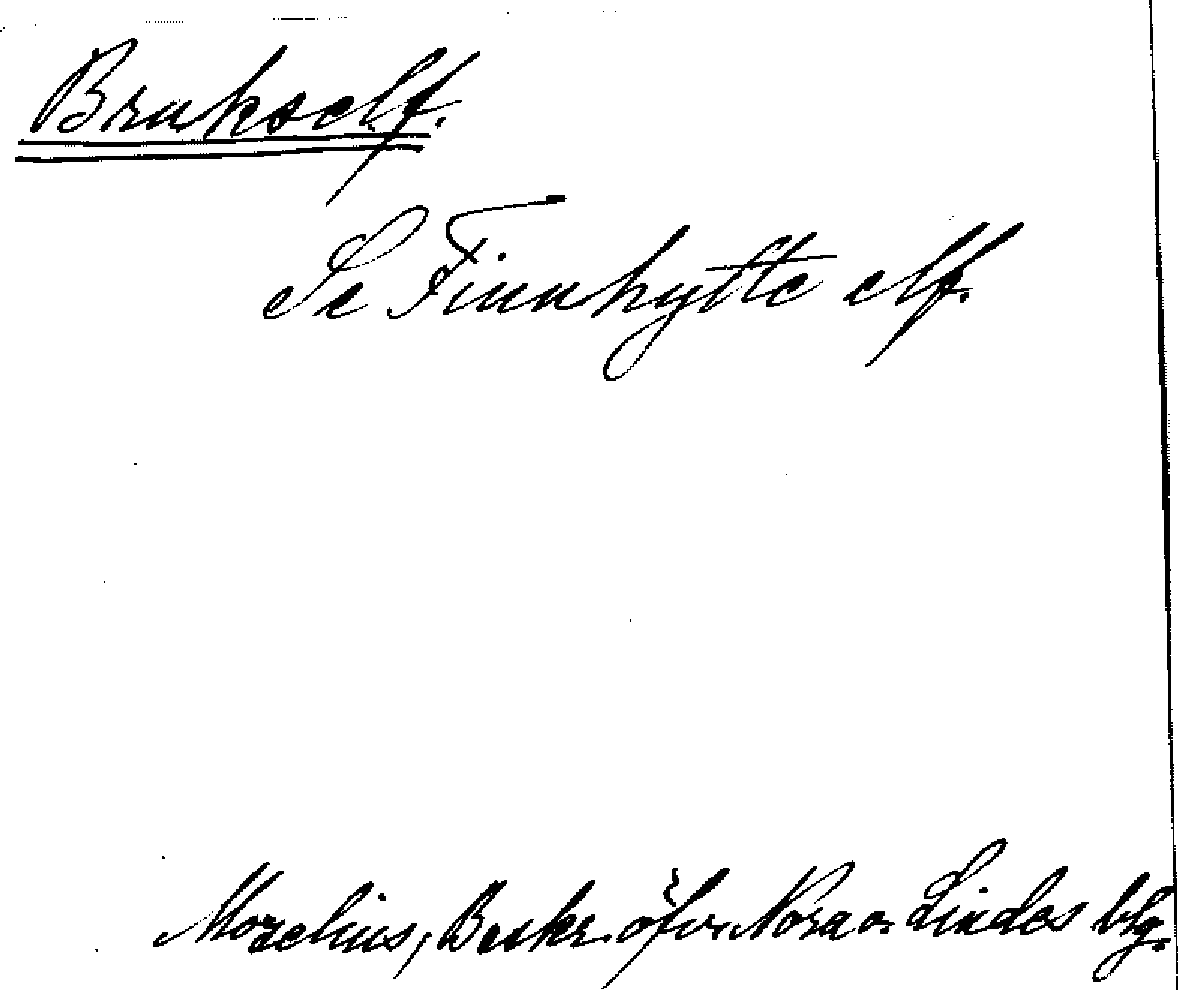 Brukself.
Se Finnhytte elf.
Morelius, Beskr. öfv. Nora o. Lindes blg.